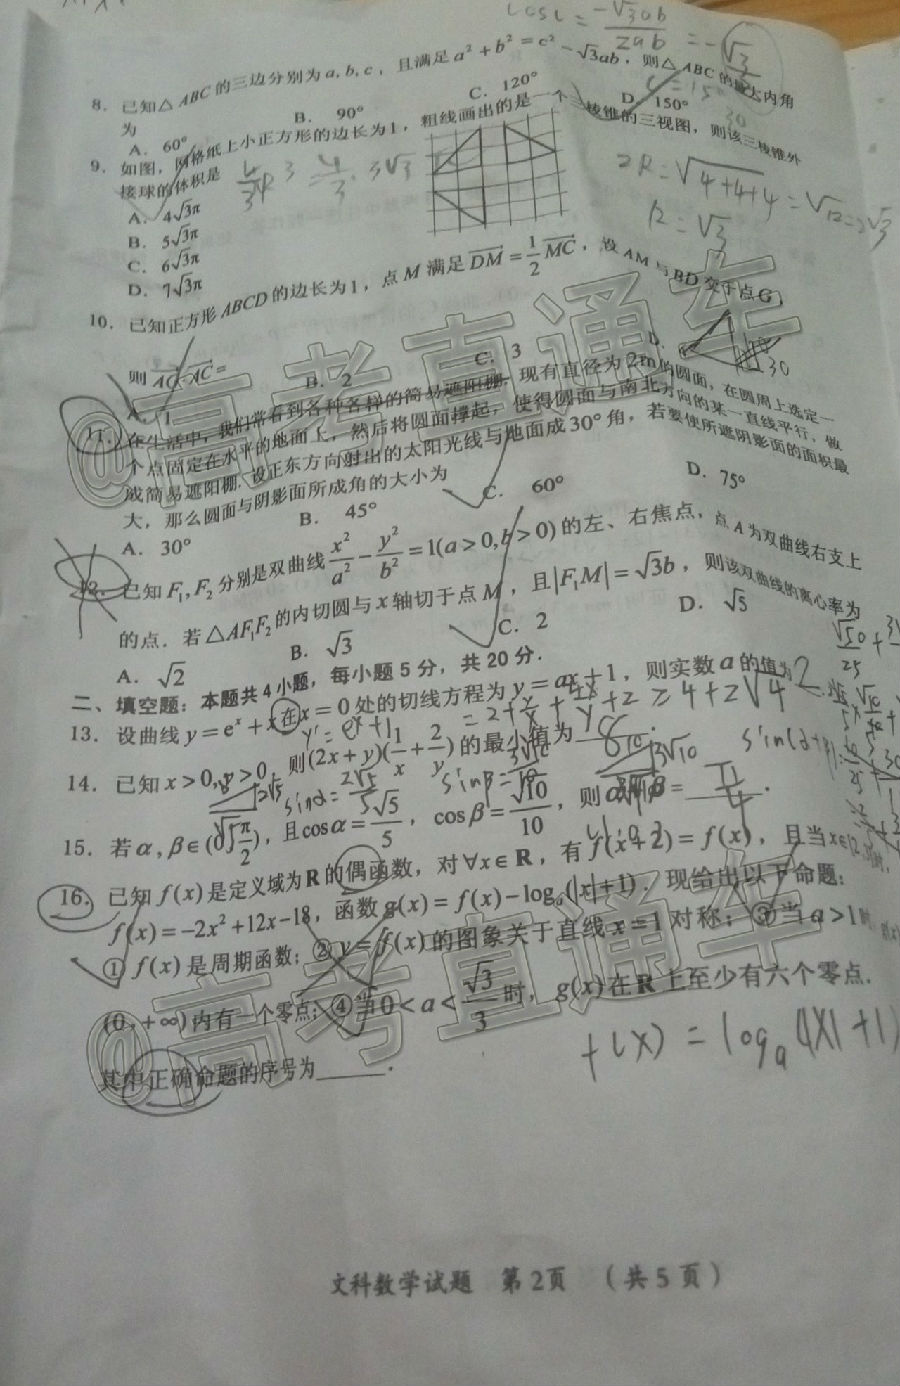 cosC = -√3ab / 2ab = -√3/2
8. 已知△ABC的三边分别为a, b, c，且满足a²+b²=c²-√3ab，则△ABC的最大内角
为
A. 60° B. 90° C. 120° D. 150°
9. 如图，网格纸上小正方形的边长为1，粗线画出的是一个三棱锥的三视图，则该三棱锥外
接球的体积是
2R=√4+4+4 = √12 = 2√3
R=√3
A. 4√3π
B. 5√3π
C. 6√3π
D. 7√3π
10. 已知正方形ABCD的边长为1，点M满足DM=1/2 MC，设AM与BD交于点G，
则AG·AC=
A. 1 B. 2 C. 3 D.
11. 在生活中，我们常看到各种各样的简易遮阳棚. 现有直径为2m的圆面，在圆周上选定一
个点固定在水平的地面上，然后将圆面撑起，使得圆面与南北方向的某一直线平行，做
成简易遮阳棚. 设正东方向射出的太阳光线与地面成30°角，若要使所遮阴影面的面积最
大，那么圆面与阴影面所成角的大小为
A. 30° B. 45° C. 60° D. 75°
12. 已知F₁, F₂分别是双曲线x²/a² - y²/b² = 1(a>0, b>0)的左、右焦点，点A为双曲线右支上
的点. 若△AF₁F₂的内切圆与x轴切于点M，且|F₁M|=√3b，则该双曲线的离心率为
A. √2 B. √3 C. 2 D. √5
二、填空题：本题共4小题，每小题5分，共20分.
13. 设曲线y=eˣ+x在x=0处的切线方程为y=ax+1，则实数a的值为 2 .
14. 已知x>0, y>0，则(2x+y)(1/x+2/y)的最小值为 8 .
15. 若α, β∈(0, π/2)，且cosα=√5/5，cosβ=√10/10，则α+β= .
16. 已知f(x)是定义域为R的偶函数，对∀x∈R，有f(x+2)=f(x)，且当x∈[2,3]时，
f(x)=-2x²+12x-18，函数g(x)=f(x)-logₐ(|x|+1). 现给出以下命题：
①f(x)是周期函数；②y=f(x)的图象关于直线x=1对称；③当a>1时，g(x)在
(0,+∞)内有一个零点；④当0<a<√3/3时，g(x)在R上至少有六个零点.
f(x) = logₐ(|x|+1)
其中正确命题的序号为______.
文科数学试题 第2页 （共5页）
@高考直通车
@高考直通车